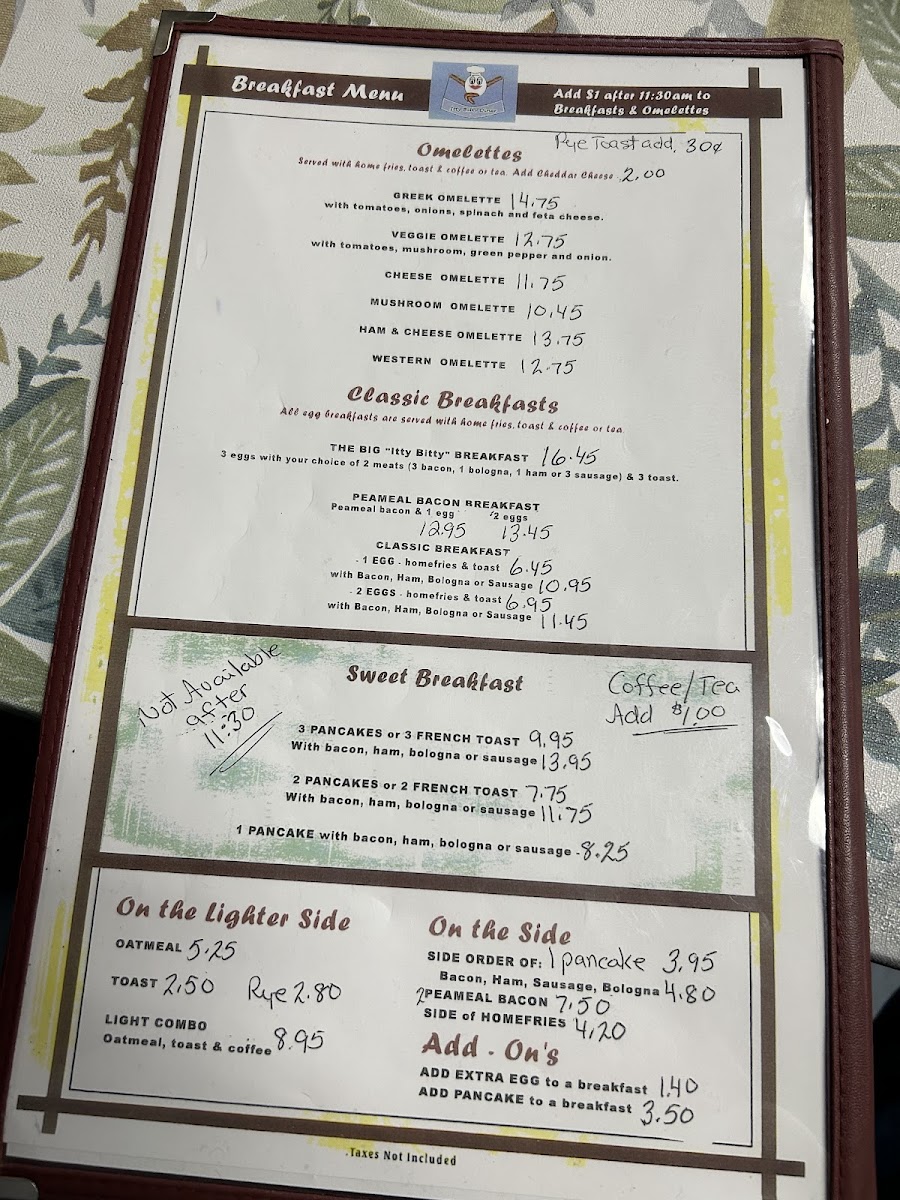 Breakfast Menu
Add $1 after 11:30am to
Breakfasts & Omelettes
Rye Toast add. 30¢
Omelettes
Served with home fries, toast & coffee or tea. Add Cheddar Cheese 2.00
GREEK OMELETTE 14.75
with tomatoes, onions, spinach and feta cheese.
VEGGIE OMELETTE 12.75
with tomatoes, mushroom, green pepper and onion.
CHEESE OMELETTE 11.75
MUSHROOM OMELETTE 10.45
HAM & CHEESE OMELETTE 13.75
WESTERN OMELETTE 12.75
Classic Breakfasts
All egg breakfasts are served with home fries, toast & coffee or tea.
THE BIG "Itty Bitty" BREAKFAST 16.45
3 eggs with your choice of 2 meats (3 bacon, 1 bologna, 1 ham or 3 sausage) & 3 toast.
PEAMEAL BACON BREAKFAST
Peameal bacon & 1 egg 2 eggs
12.95 13.45
CLASSIC BREAKFAST
- 1 EGG - homefries & toast 6.45
with Bacon, Ham, Bologna or Sausage 10.95
- 2 EGGS - homefries & toast 6.95
with Bacon, Ham, Bologna or Sausage 11.45
Not Available
after
11:30
Sweet Breakfast
Coffee/Tea
Add $1.00
3 PANCAKES or 3 FRENCH TOAST 9.95
With bacon, ham, bologna or sausage 13.95
2 PANCAKES or 2 FRENCH TOAST 7.75
With bacon, ham, bologna or sausage 11.75
1 PANCAKE with bacon, ham, bologna or sausage - 8.25
On the Lighter Side
OATMEAL 5.25
TOAST 2.50 Rye 2.80
LIGHT COMBO
Oatmeal, toast & coffee 8.95
On the Side
SIDE ORDER OF: 1 pancake 3.95
Bacon, Ham, Sausage, Bologna 4.80
2 PEAMEAL BACON 7.50
SIDE of HOMEFRIES 4.20
Add - On's
ADD EXTRA EGG to a breakfast 1.40
ADD PANCAKE to a breakfast 3.50
.Taxes Not Included